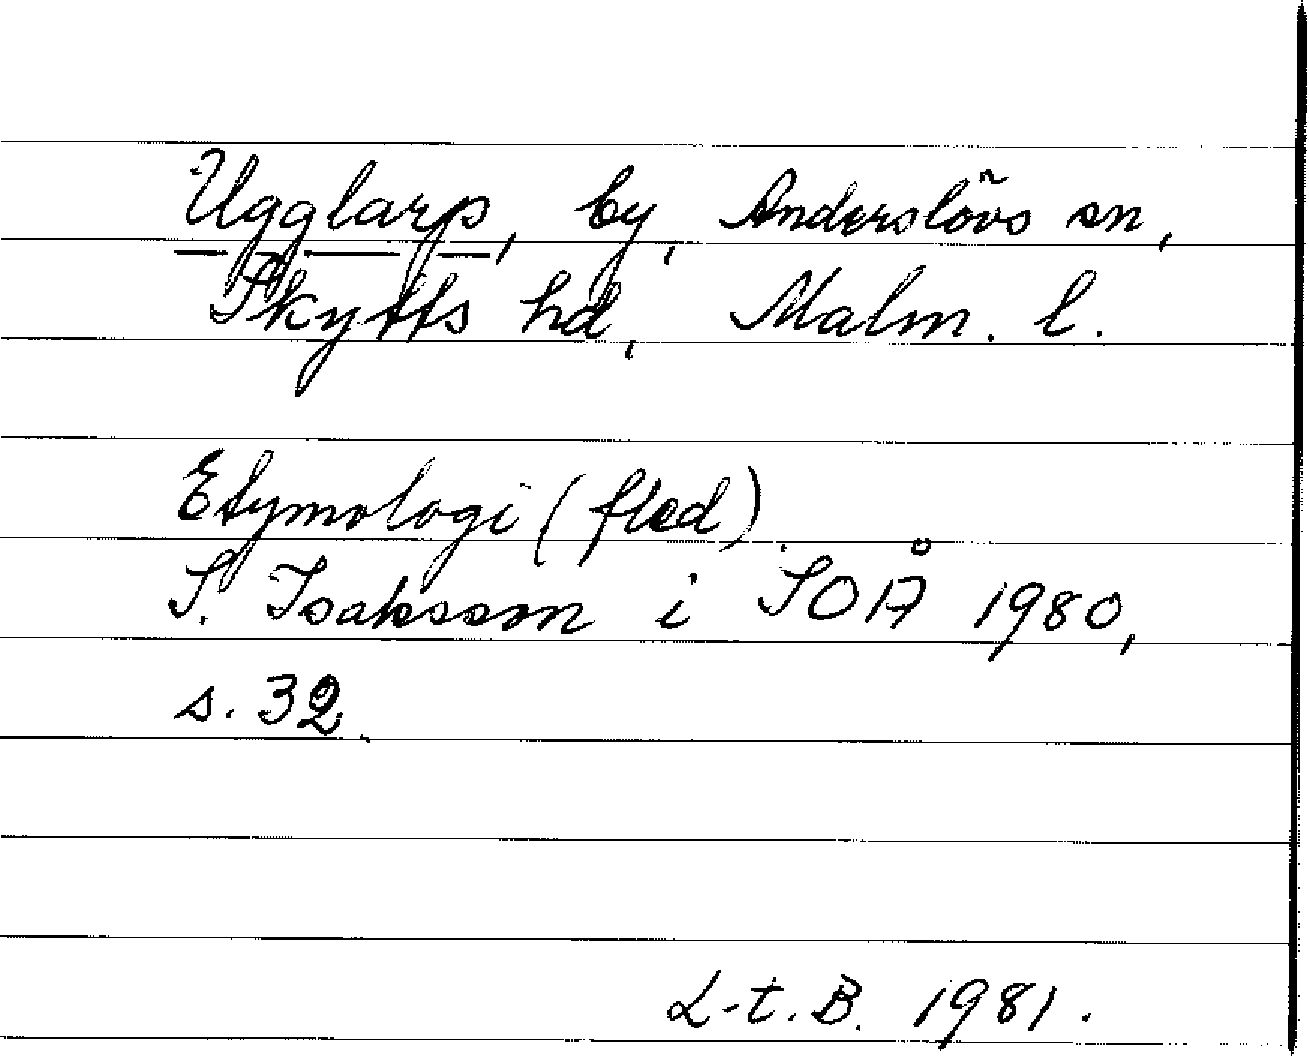 Ugglarp, by, Anderslövs sn,
Skytts hd, Malm. l.
Etymologi (fled).
S. Isaksson i SOÅ 1980,
s. 32.
L-t. B. 1981.